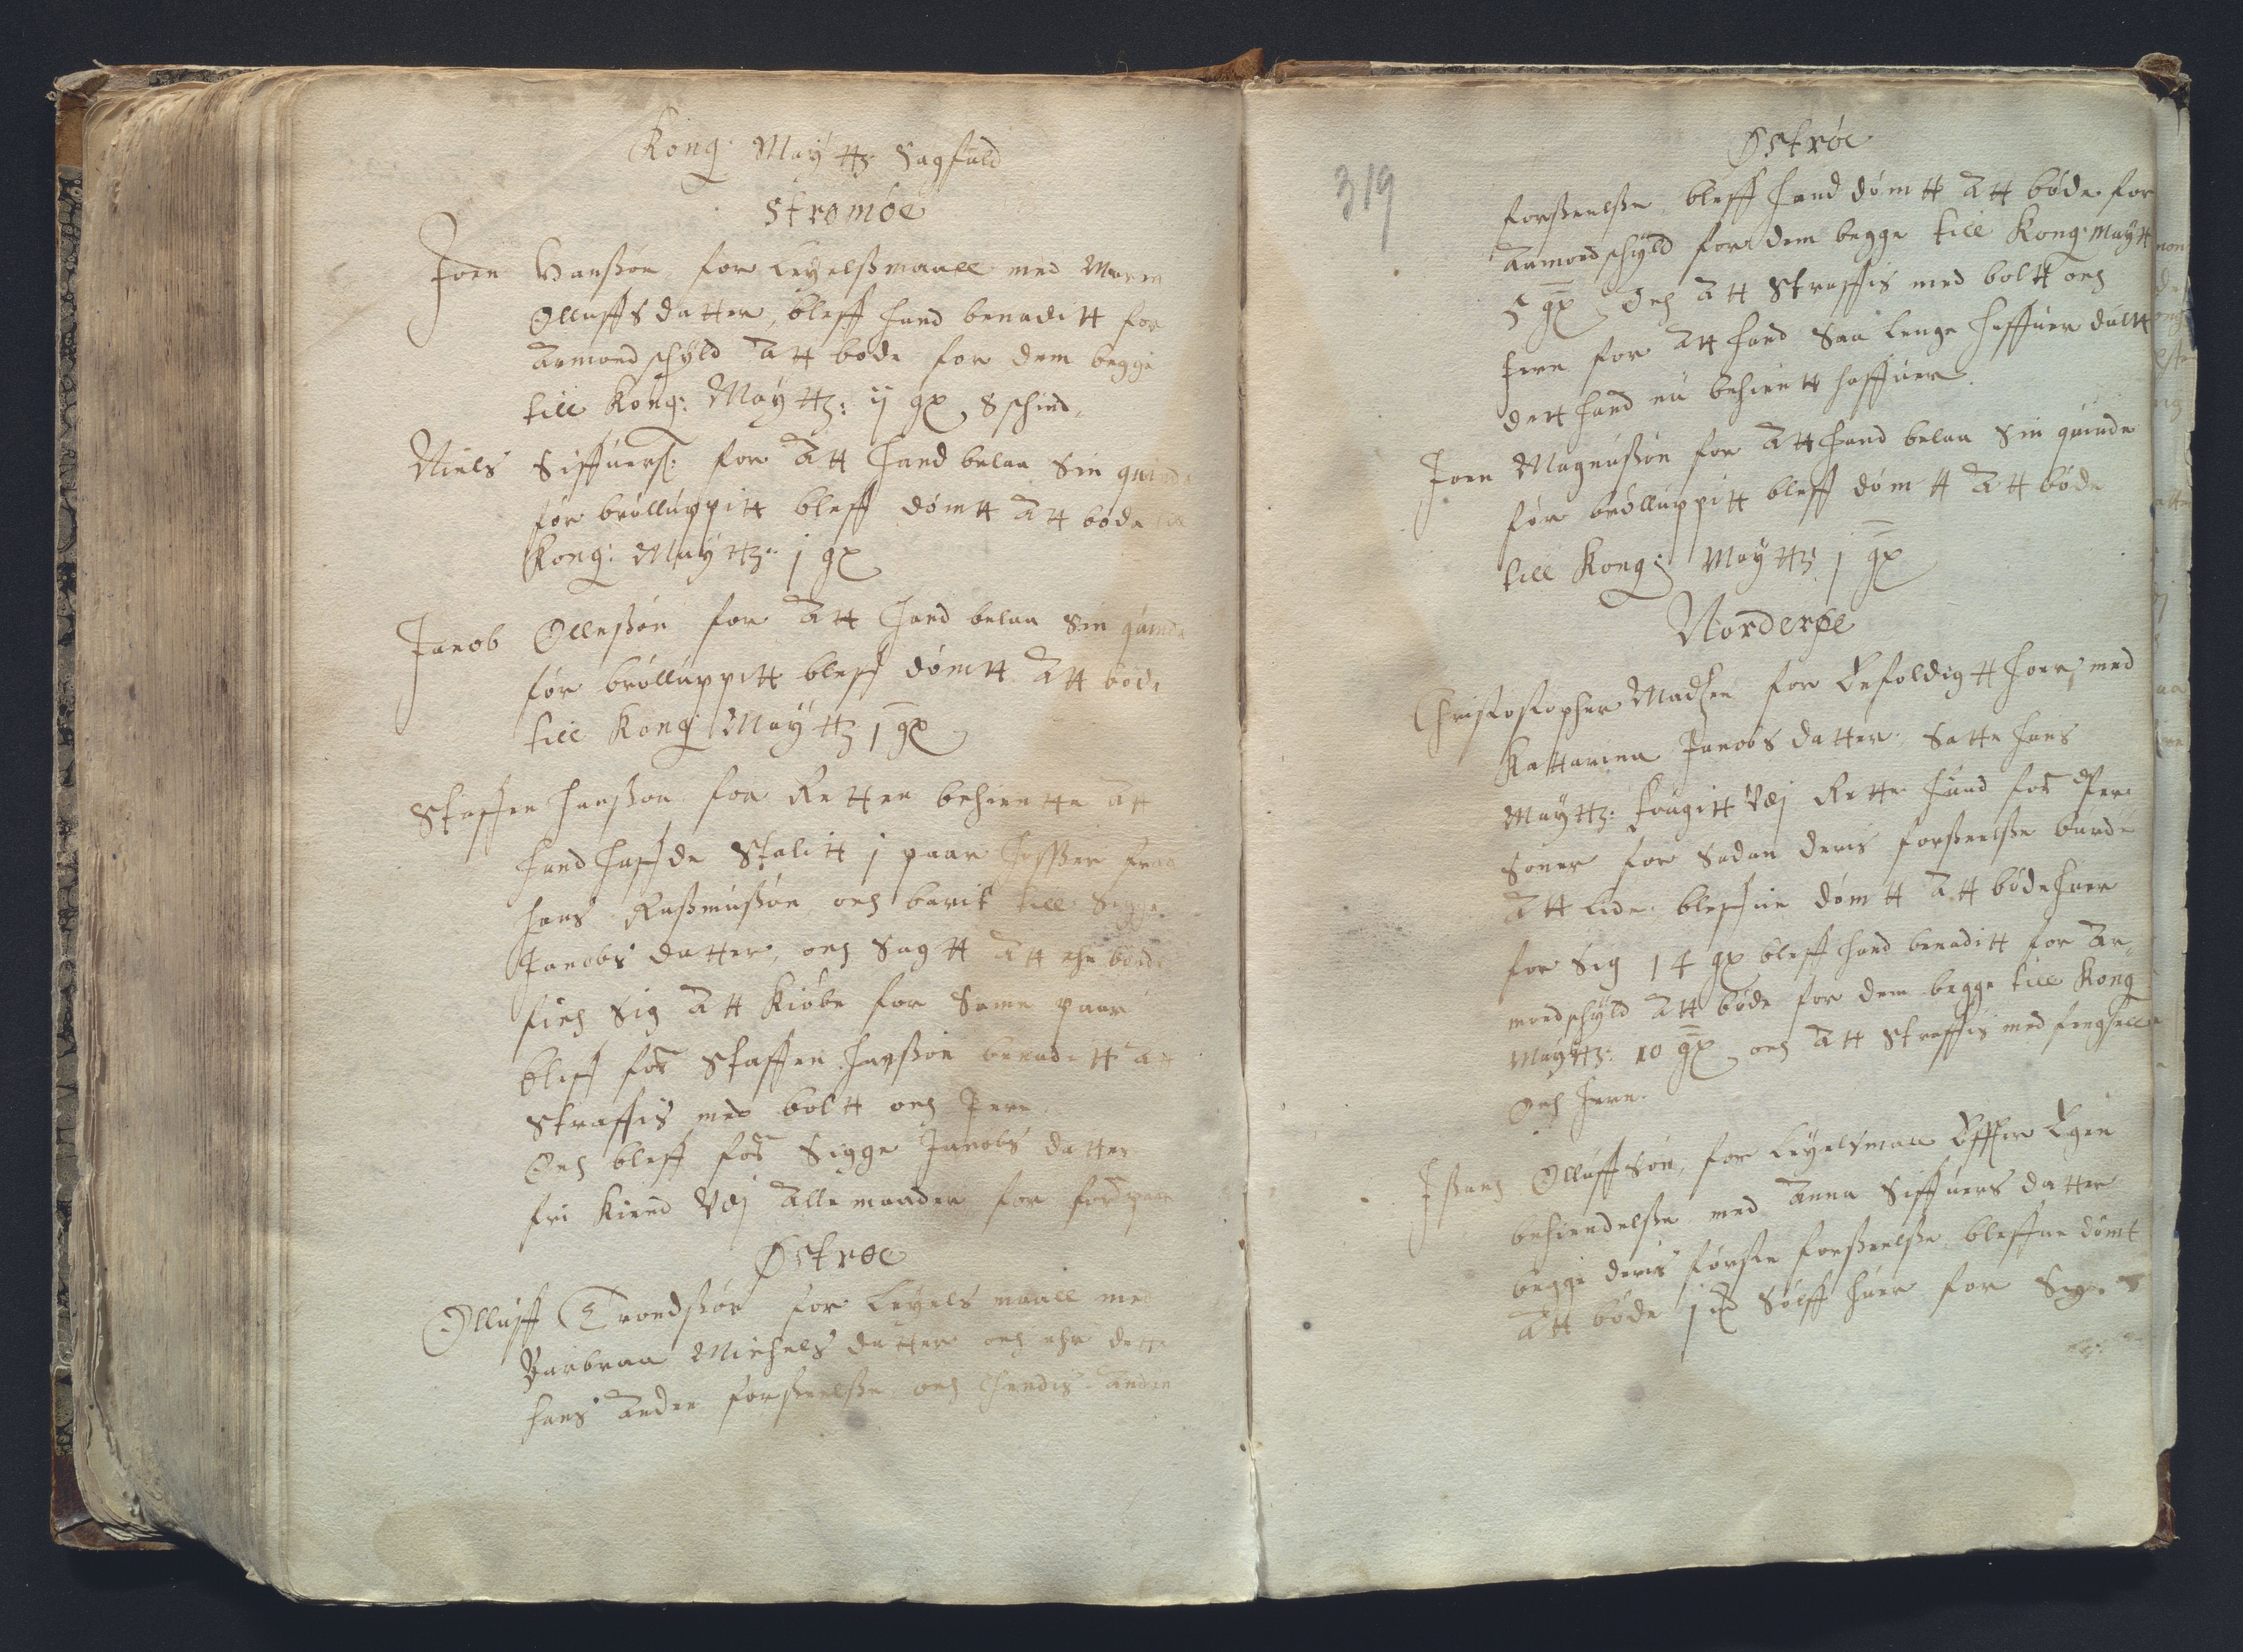 Kong: Maÿttz Sagfald
Strømøe
Joen Hanßøn for Leÿelßmaall med Maren
Olluffs datter, bleff hand benaditt for
Armoed schÿld Att bøde for dem begge
till Kong: Maÿttz: ij gx 8 schind.
Niels Siffuers: for Att hand belaa Sin quinde
før brøllúppitt bleff dømtt Att bøde till
Kong: Maÿttz: j gx
Jacob Olleßøn for Att hand belaa Sin quinde
før brøllúppitt bleff dømtt Att bøde
till Kong Maÿttz j gx
Staffen Hanßøn for Retten bekiente Att
hand haffde Stalitt j paar hoßer fraa
Hans Raßmußøn och barit till Sigge
Jacobs datter, och Sagtt Att ehr bød
fich Sig Att Kiøbe for Same paar
bleff for: Staffen Hanßøn benaditt Att
Straffis med boltt och Jern.
Och bleff for: Sigge Jacobs datter
fri Kiend Udj Alle maader for
Østrøe
Olluff Trondßøn for Leÿels maall med
Barbraa Michels datter och ehr dette
hans Anden forßeelße och hendis Anden
319
Østrøe
forßeelße bleff hand dømtt Att bøde for
Armoed schÿld for dem begge till Kong: Maÿtt
5 gx Och Att Straffis med boltt och
Jern for Att hand Saa lenge haffuer dultt
dett hand nú bekientt haffuer.
Joen Magnußøn for Att hand belaa Sin quinde
før brøllúppitt bleff dømtt Att bøde
till Kong: Maÿttz j gx
Norderøe
Christofopher Madsen for Enfoldigtt hoer, med
Kattarina Jacobs datter, Satte hans
Maÿttz: fougitt Udj Rette huad for: Per
soner for Sadan deris forßeelße burde
Att Lide. bleffue dømtt Att bøde huer
for Sig 14 gx bleff hand benaditt for Ar,
moedschÿld Att bøde for dem begge till Kong
Maÿttz: 10 gx och Att Straffis med fengsell
Och Jern.
Jßach Olluffsøn, for Leÿelsmaa Effter Egen
bekiendelße med Anna Siffuers datter
begge deris første forßeelße bleffue dømt
Att bøde j Sølff huer for Sig.